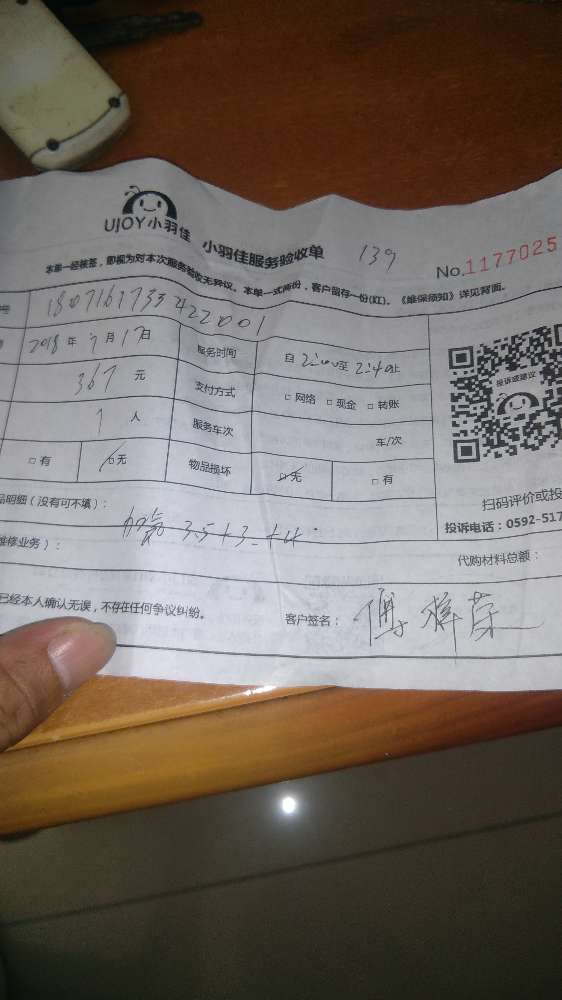 UJOY小羽佳 小羽佳服务验收单 139
No.1177025
本单一经核签，即视为对本次服务验收无异议。本单一式两份，客户留存一份(红)。《维保须知》详见背面。
号 180716173342２001
2018年7月17日 服务时间 自2:00至2:40止
367元 支付方式 □网络 □现金 □转账
1人 服务车次 车/次
□有 □无 物品损坏 □无 □有
投诉或建议
扫码评价或投
投诉电话：0592-517
品明细（没有可不填）：
加氟 3.5+3.+4
维修业务）： 代购材料总额：
已经本人确认无误，不存在任何争议纠纷。 客户签名：傅